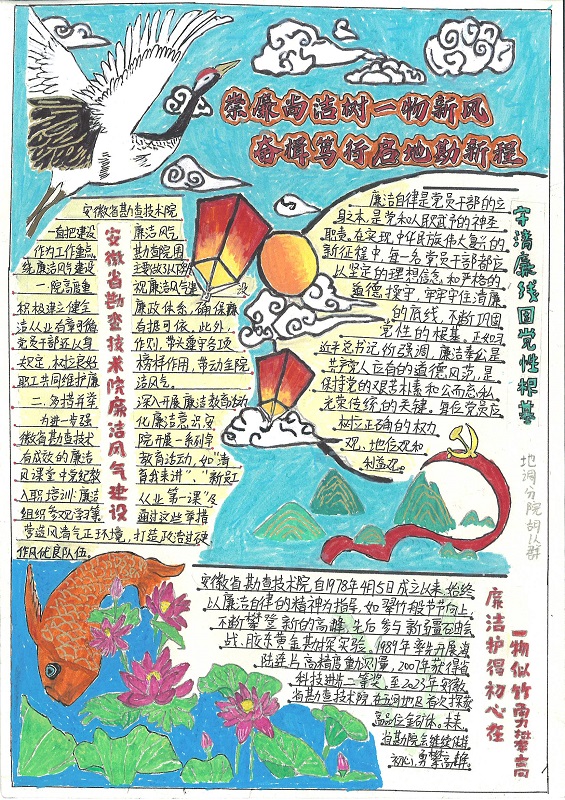 崇廉尚洁树一物新风
奋楫笃行启地勘新程
安徽省勘查技术院
一直把建设
廉洁风气
作为工作重点
勘查院围
绕廉洁风气建设
主要做以下几点
一、院高度重
视廉洁风气建设
积极建立健全
廉政体系,确保廉
洁从业有章可循
有据可依。此外,
党员干部还以身
作则,带头遵守各项
规定,树立良好
榜样作用,带动全院
职工共同维护廉
洁风气。
二、多措并举
深入开展廉洁教育活动
为进一步强
化廉洁意识,安
徽省勘查技术
院开展一系列卓
有成效的廉洁
教育活动,如“清
风课堂中党纪教
育我来讲”、“新员工
入职培训:廉洁
从业第一课”及
组织参观学习等
通过这些举措
营造风清气正环境,打造政治过硬、
作风优良队伍。
安徽省勘查技术院廉洁风气建设
廉洁自律是党员干部的立
身之本,是党和人民赋予的神圣
职责,在实现中华民族伟大复兴的
新征程中,每一名党员干部都应
以坚定的理想信念,和严格的
道德操守,牢牢守住清廉
的底线,不断巩固
党性的根基。正如习
近平总书记所强调,廉洁奉公是
共产党人应有的道德风范,是
保持党的艰苦朴素和公而忘私
光荣传统的关键。每位党员应
树立正确的权力
观、地位观和
利益观。
守清廉线固党性根基
地调分院 胡从群
安徽省勘查技术院自1978年4月5日成立以来,始终
以廉洁自律的精神为指导,如翠竹般节节向上,
不断攀登新的高峰,先后参与新疆石油会
战、胶东黄金勘探实验,1989年率先开展海
陆连片高精度重力测量,2007年获得省
科技进步二等奖,至2023年安徽
省勘查技术院在五河地区首次探获
高品位金矿体。未来,
省勘院会继续保持
初心,勇攀高峰。
一物似竹勇攀高
廉洁护得初心在